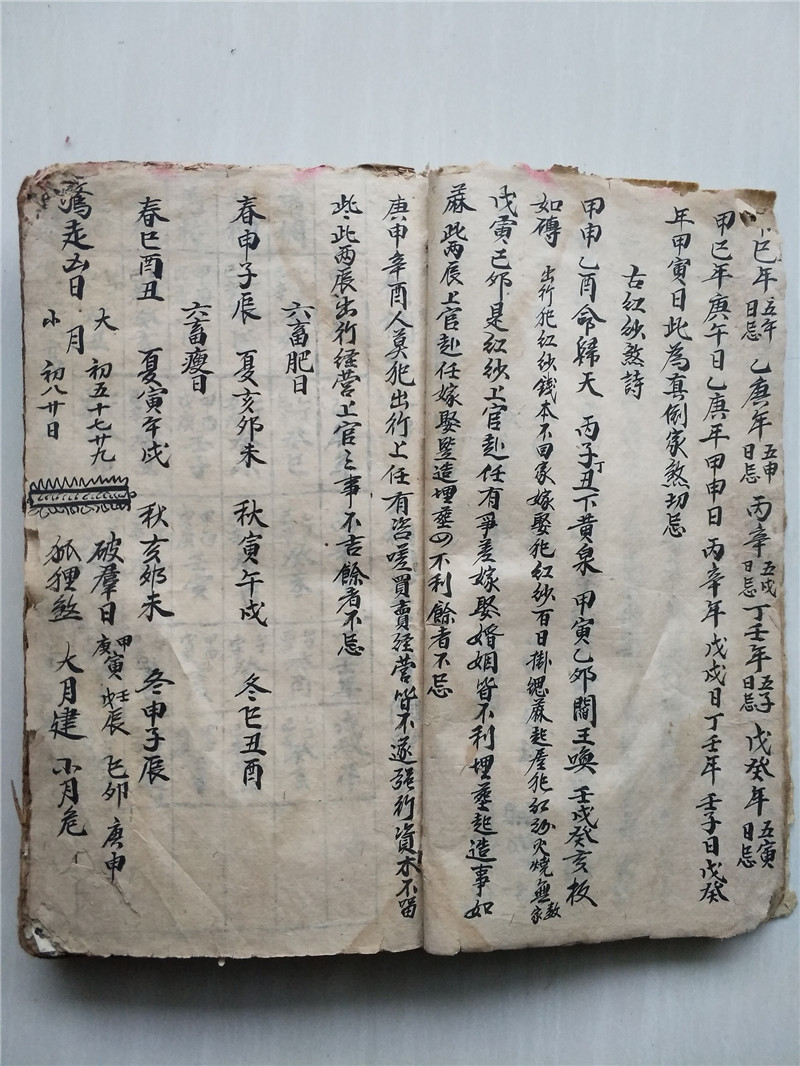 巳年五午日忌 乙庚年五申日忌 丙辛五戌日忌 丁壬年五子日忌 戊癸年五寅日忌
甲巳年庚午日乙庚年甲申日 丙辛年戊戌日丁壬年 壬子日戊癸
年甲寅日此為真倒家煞切忌
古紅紗煞詩
甲申乙酉命歸天 丙子丁丑下黄泉 甲寅乙卯閻王喚 壬戌癸亥板
如磚 出行犯紅紗錢本不回家嫁娶犯紅紗百日掛緦蔴起屋犯紅紗火燒無數家
戊寅己卯是紅紗上官赴任有爭差嫁娶婚姻皆不利埋塟起造事如
蔴此两辰上官赴任嫁娶竪造埋塟凶不利餘者不忌
庚申辛酉人莫犯出行上任有咨嗟買賣經营皆不遂强行資本不留
些此两辰出行經营上官之事不吉餘者不忌
六畜肥日
春申子辰 夏亥卯未 秋寅午戌 冬巳丑酉
六畜瘦日
春巳酉丑 夏寅午戌 秋亥卯未 冬申子辰
驚走凶日 大月 初五十七廿九 破羣日 甲寅庚寅 壬辰戊辰 己卯 庚申
小月 初八廿日 狐狸煞 大月建 小月危